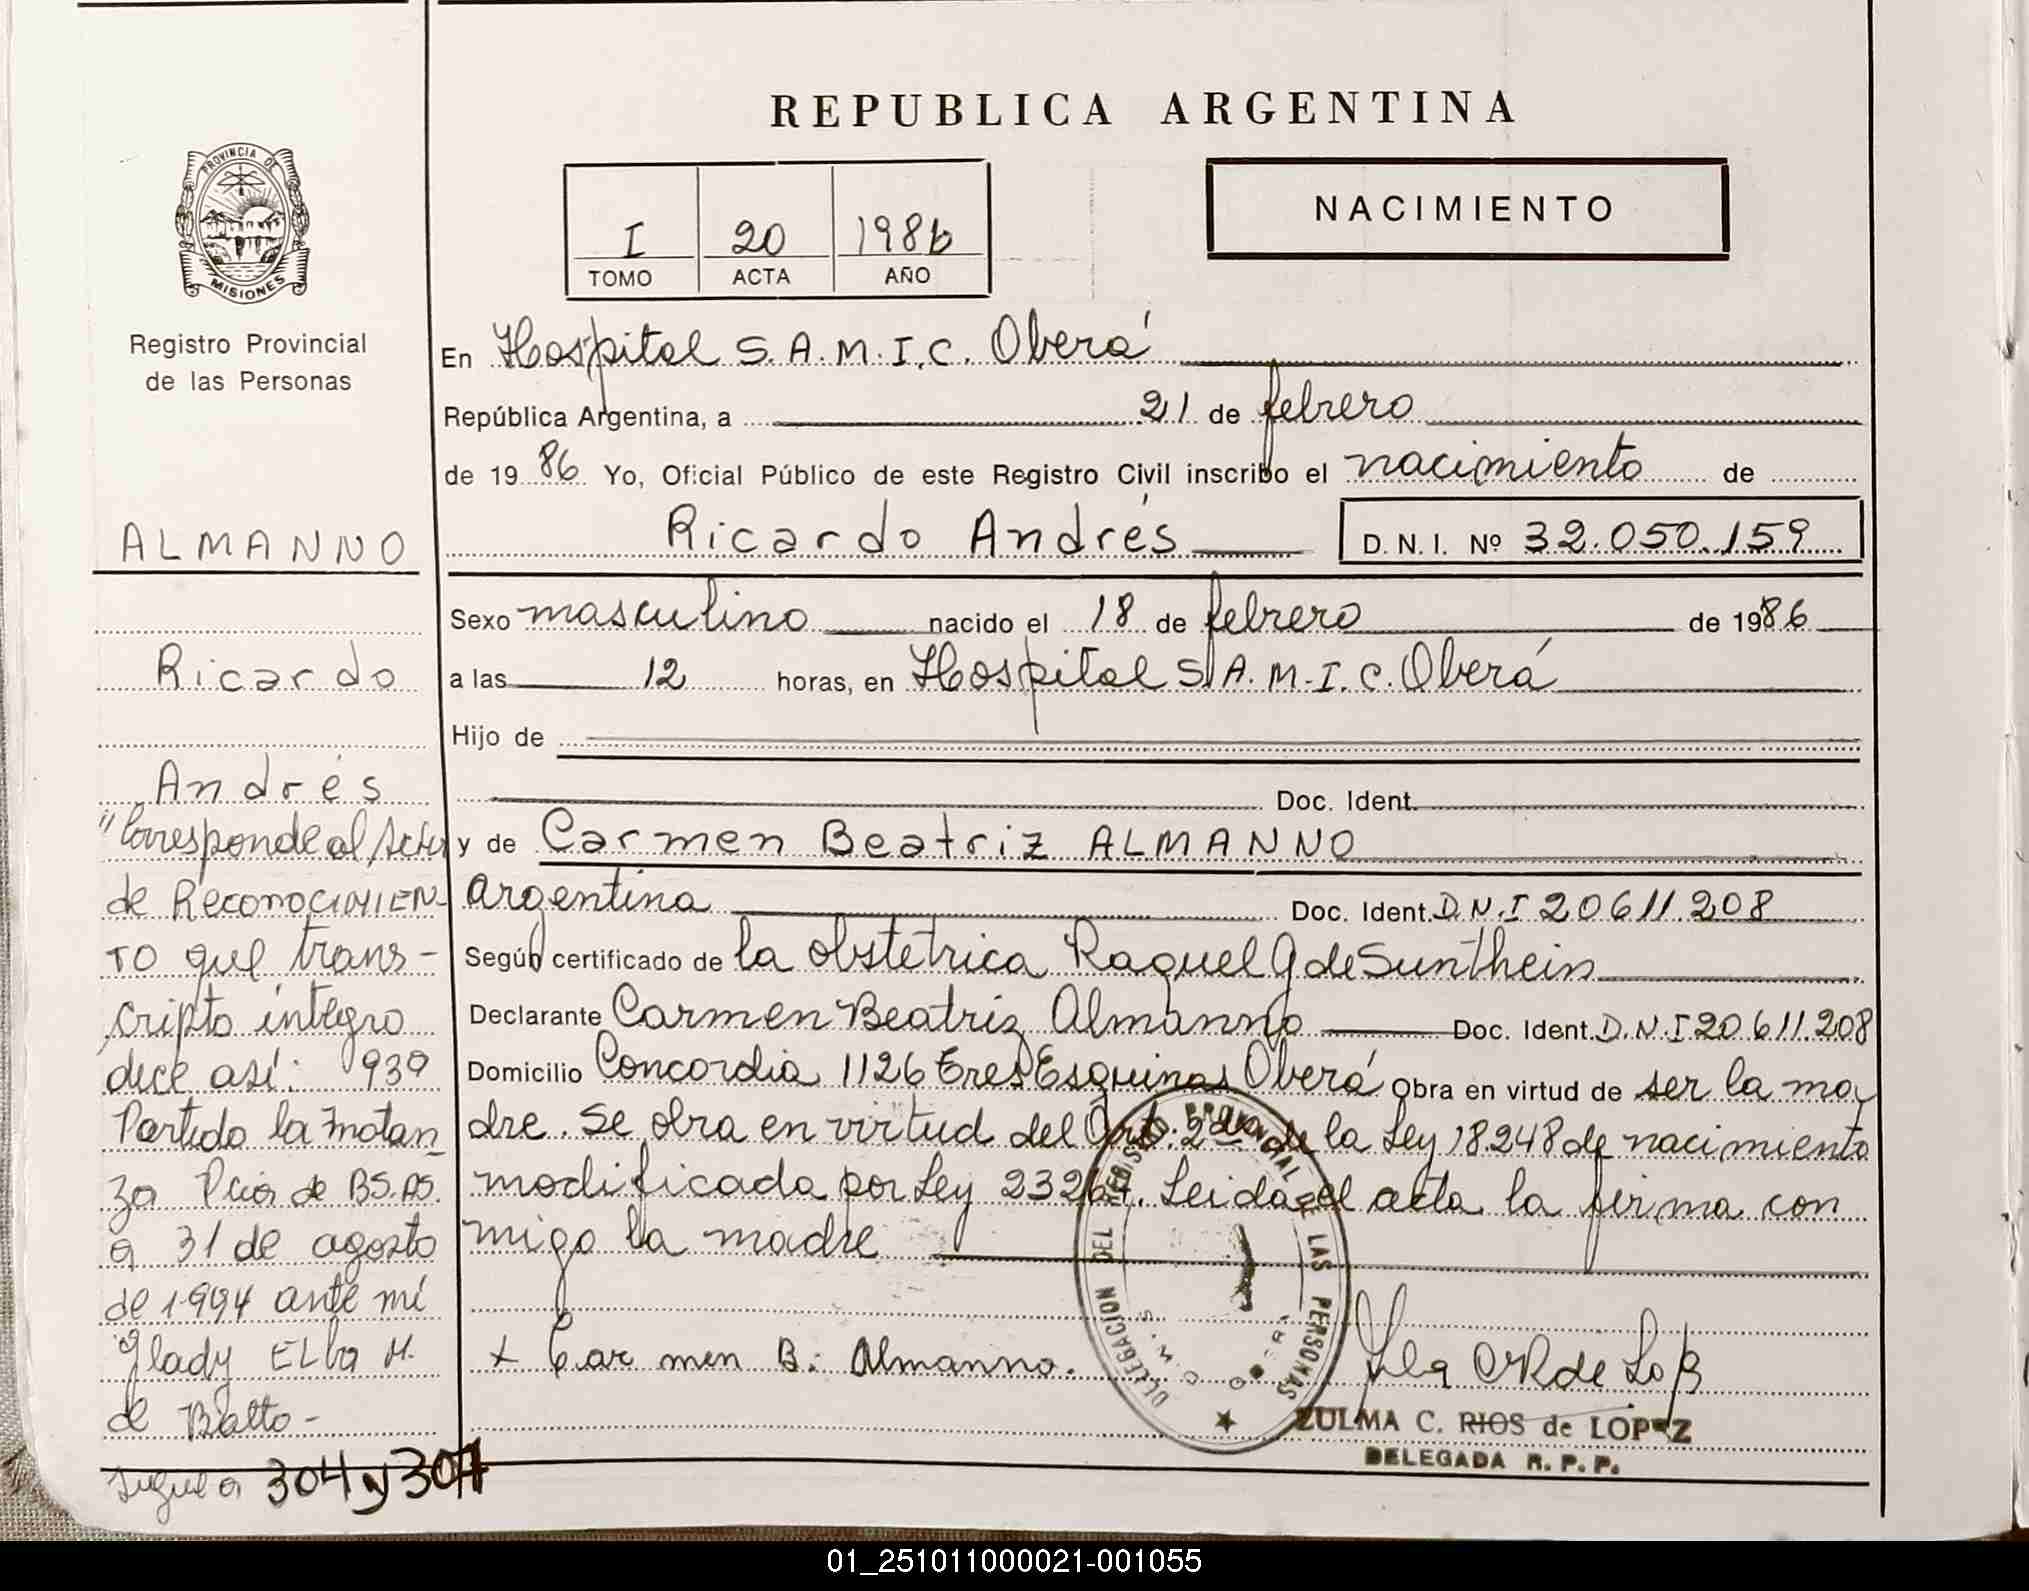 REPUBLICA ARGENTINA
PROVINCIA DE
MISIONES
Registro Provincial
de las Personas
I 20 1986
TOMO ACTA AÑO
NACIMIENTO
En Hospital S.A.M.I.C. Oberá
República Argentina, a 21 de febrero
de 1986 Yo, Oficial Público de este Registro Civil inscribo el nacimiento de
Ricardo Andrés D.N.I. Nº 32.050.159
Sexo masculino nacido el 18 de febrero de 1986
a las 12 horas, en Hospital S.A.M.I.C. Oberá
Hijo de
Doc. Ident.
y de Carmen Beatriz ALMANNO
argentina Doc. Ident. D.N.I 20611.208
Según certificado de la obstetrica Raquel G de Sunthein
Declarante Carmen Beatriz Almanno Doc. Ident. D.N.I 20611.208
Domicilio Concordia 1126 Tres Esquinas Oberá Obra en virtud de ser la ma
dre. Se obra en virtud del Art. 2do de la Ley 18.248 de nacimiento
modificada por Ley 23264. Leida el acta la firma con
migo la madre
+ Carmen B. Almanno.
ZULMA C. RIOS de LOPEZ
DELEGADA R.P.P.
DELEGACION DEL REGISTRO PROVINCIAL DE LAS PERSONAS
ALMANNO
Ricardo
Andrés
"Corresponde al Acta
de RECONOCIMIEN-
TO que trans-
cripto integro
dice así: 939
Partido la Matan
za Pcia de BS.AS.
a 31 de agosto
de 1994 ante mí
Glady ELba M.
de Batto-
sigue a 304 y 307
01_251011000021-001055